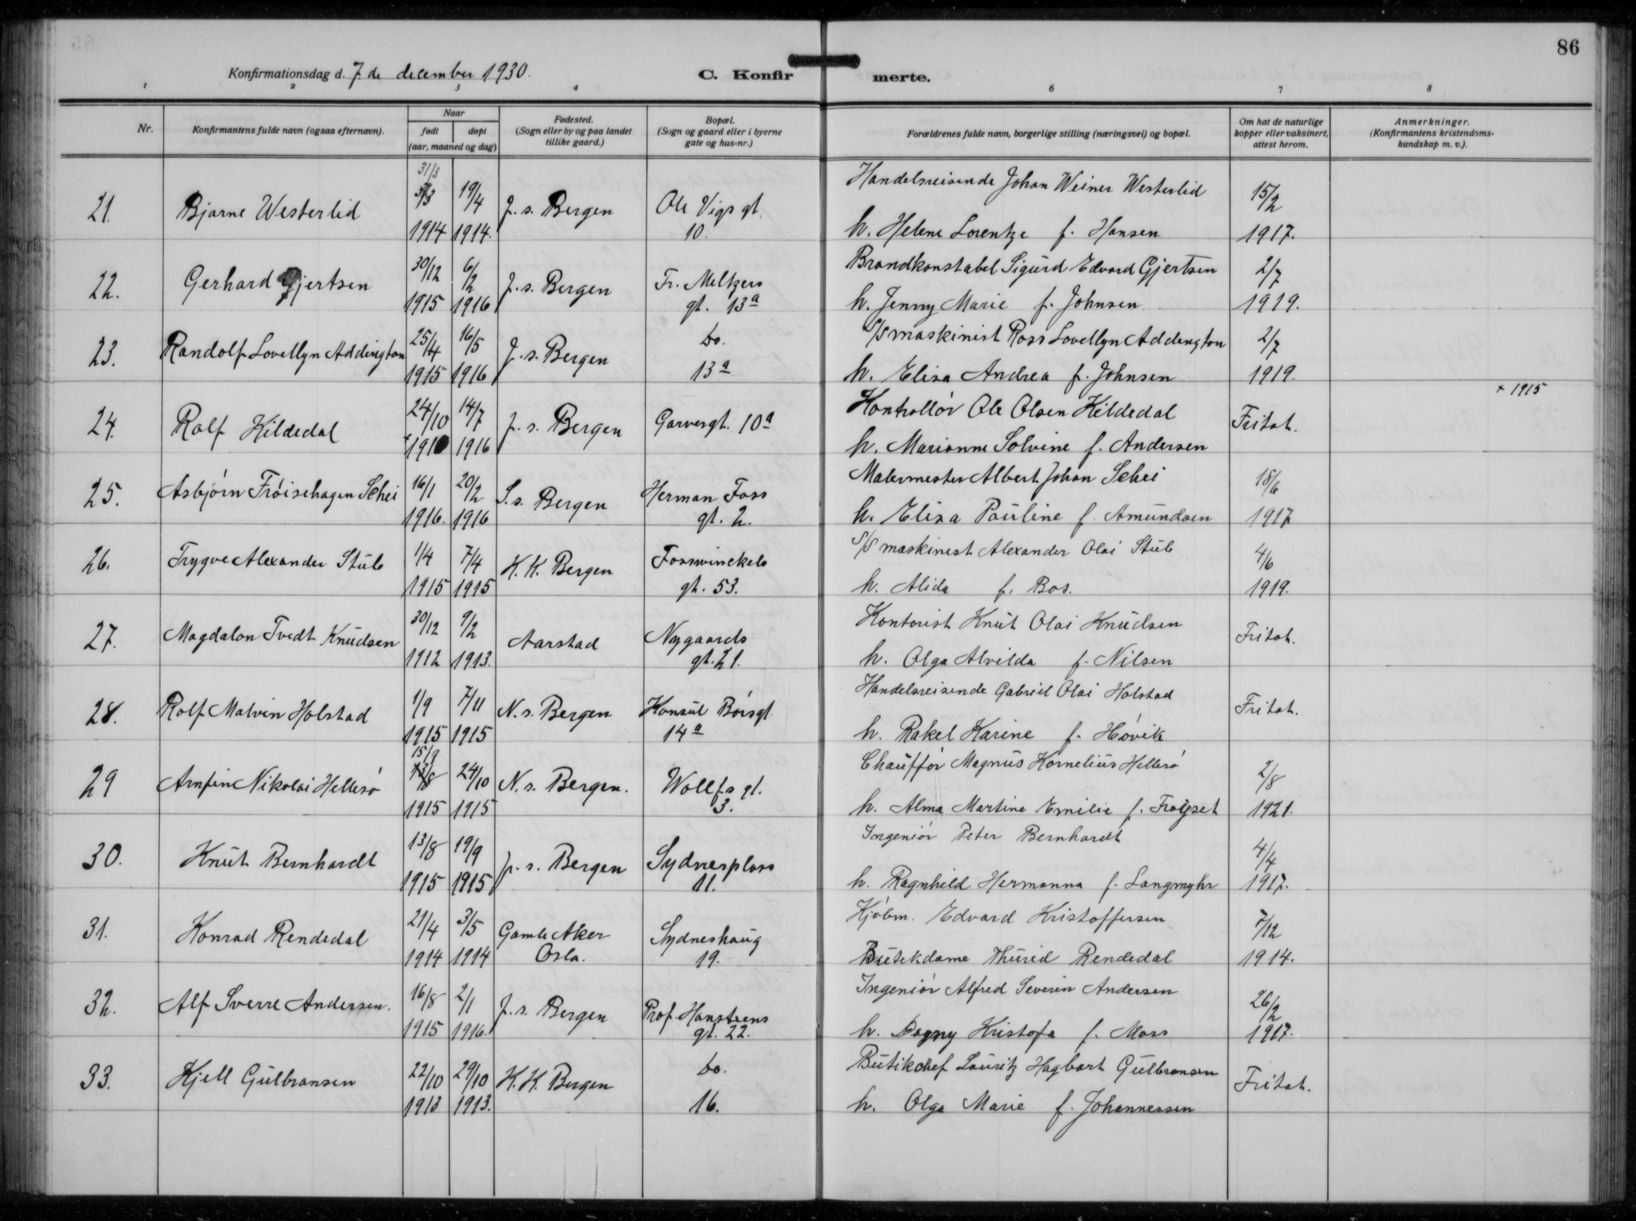 86
Konfirmationsdag d. 7 de december 1930.
C. Konfirmerte.
1 2 3 4 5 6 7 8
Nr.
Konfirmantens fulde navn (ogsaa efternavn).
Naar
født døpt
(aar, maaned og dag)
Fødested.
(Sogn eller by og paa landet
tillike gaard.)
Bopæl.
(Sogn og gaard eller i byerne
gate og hus-nr.)
Forældrenes fulde navn, borgerlige stilling (næringsvei) og bopæl.
Om hat de naturlige
kopper eller vaksinert,
attest herom.
Anmerkninger.
(Konfirmantens kristendoms-
kundskap m. v.).
31/3
21. Bjarne Westerlid 19/4 J. s. Bergen Ole Vigs gt. Handelsreisende Johan Weiner Westerlid 15/2
1914 1914. 10. h. Helene Lorentze f. Hansen 1917.
22. Gerhard Gjertsen 30/12 6/2 J. s. Bergen Fr. Meltzers Brandkonstabel Sigurd Edvard Gjertsen 2/7
1915 1916 gt. 13a h. Jenny Marie f. Johnsen 1919.
23. Randolf Lovellyn Addington 25/14 16/5 J. s. Bergen do. S/S maskinist Ross Lovellyn Addington 2/7
1915 1916 13a h. Elisa Andrea f. Johnsen 1919.
24. Rolf Hildedal 24/10 14/7 J. s. Bergen Garvergt. 10a Kontrollör Ole Olsen Hildedal Fritat. + 1915
1916 h. Marianne Solvine f. Andersen
25. Asbjörn Tröisehagen Schei 16/1 20/2 S. s. Bergen Herman Foss Malermester Albert Johan Schei 18/6
1916. 1916 gt. 2. h. Elisa Pauline f. Amundsen 1917
26. Trygve Alexander Stub 1/4 7/4 K. K. Bergen Fosswinckels S/S maskinist Alexander Olai Stub 4/6
1915 1915 gt. 53. h. Alida f. Bos. 1919.
27. Magdalon Tvedt Knudsen 30/12 9/2 Aarstad Nygaards Kontorist Knut Olai Knudsen Fritat.
1912 1913. gt. 21. h. Olga Alvilda f. Nilsen
28. Rolf Malvin Holstad 1/9 7/11 N. s. Bergen Konsul Börsgt. Handelsreisende Gabriel Olai Holstad Fritat.
1915 1915 14a h. Rakel Karine f. Hövik
15/9
29 Arnfinn Nikolai Hellesö 24/10 N. s. Bergen. Wollfs gt. Chaufför Magnus Kornelius Hellesö 2/8
1915 1915 3. h. Alma Martine Emilie f. 1921.
30. Knut Bernhardt 13/8 19/9 J. s. Bergen Sydnesplass Ingeniör Peter Bernhardt 4/4
1915 1915 11. h. Ragnhild Hermanna f. Langmyhr 1917.
31. Konrad Rendedal 21/4 3/5 Gamle Aker Sydneshaug Kjöbm. Edvard Kristoffersen 7/12
1914 1914 Oslo. 19. Butikdame Thurid Rendedal 1914.
32. Alf Sverre Andersen. 16/8 2/1 J. s. Bergen Prof. Hansteens Ingeniör Alfred Severin Andersen 26/2
1915 1916. gt. 22. h. Dagny Kristofa f. Moss 1917.
33. Kjell Gulbransen 22/10 29/10 K. K. Bergen do. Butikchef Lauritz Hagbart Gulbransen Fritat.
1913 1913. 16. h. Olga Marie f. Johannessen